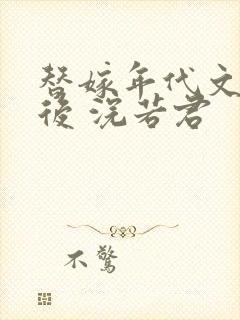 替嫁年代文
後 浣若君
不驚